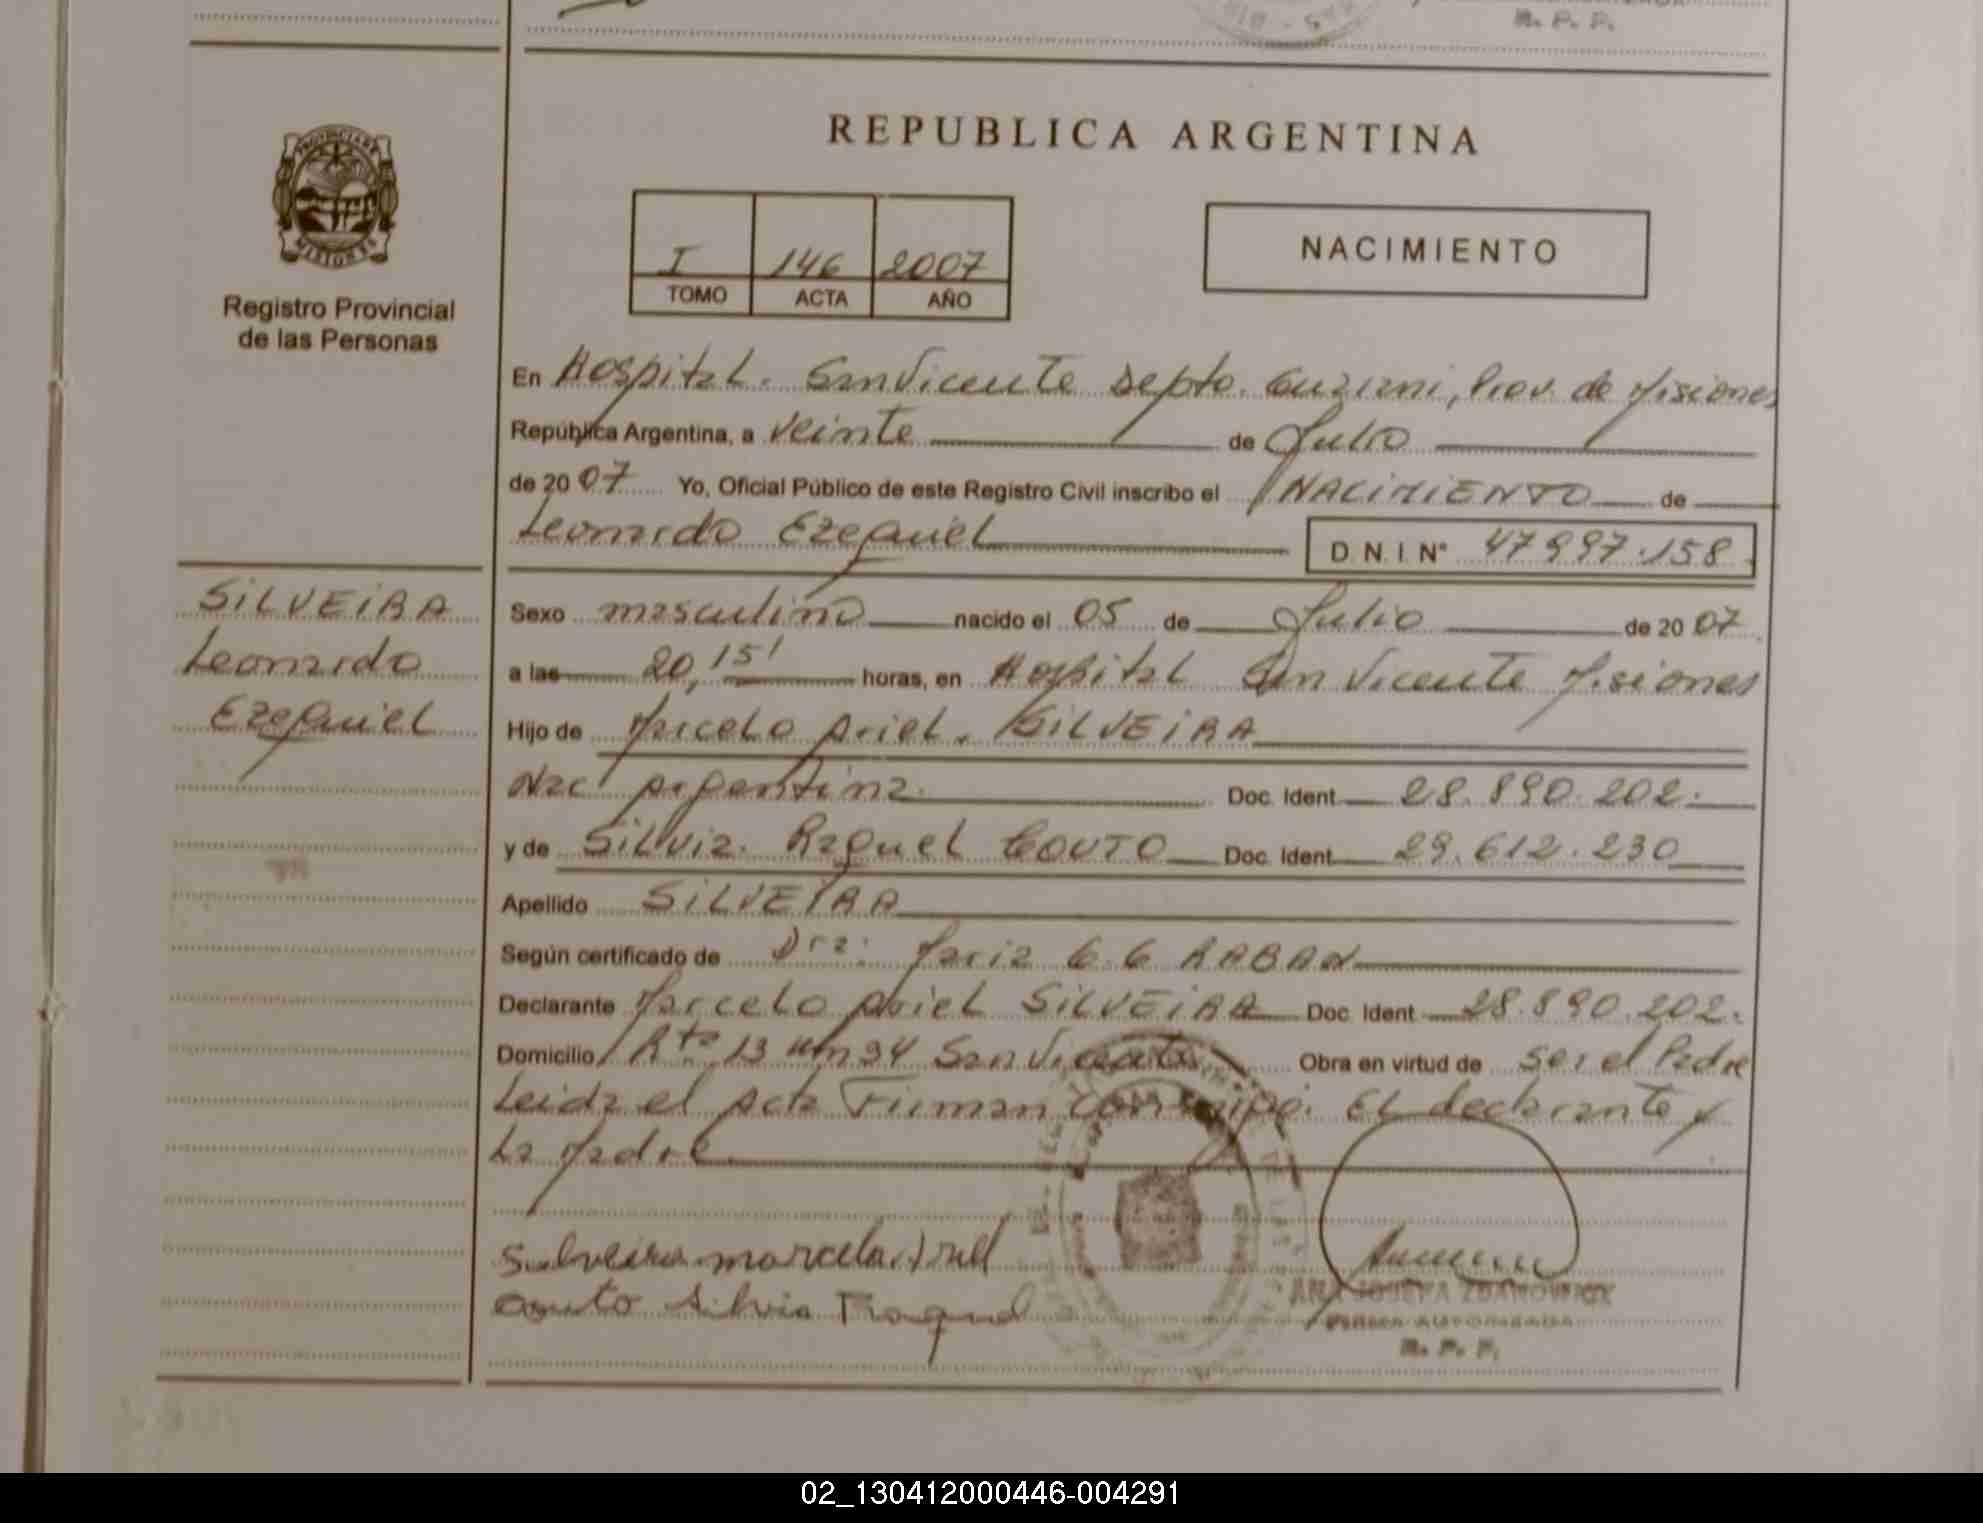 R. P. P.
PROVINCIA DE
MISIONES
Registro Provincial
de las Personas
REPUBLICA ARGENTINA
I 146 2007
TOMO ACTA AÑO
NACIMIENTO
En Hospital. San Vicente Depto. Guarani, Prov. de Misiones
República Argentina, a veinte de Julio
de 2007 Yo, Oficial Público de este Registro Civil inscribo el NACIMIENTO de
Leonardo Ezequiel D. N. I. N° 47997.158
SILVEIRA
Leonardo
Ezequiel
Sexo masculino nacido el 05 de Julio de 2007
a las 20,15' horas, en Hospital San Vicente Misiones
Hijo de Marcelo Ariel. SILVEIRA
Nac Argentina. Doc. Ident. 28.890.202.
y de Silvia. Raquel COUTO Doc. Ident. 29.612.230
Apellido SILVEIRA
Según certificado de Dra: Maria G. G RABAN
Declarante Marcelo Ariel SILVEIRA Doc. Ident. 28.890.202.
Domicilio Rta 13 Km 94 San Vicente Obra en virtud de ser el Padre
Leida el Acta Firman conmigo. EL declarante y
La Madre
Silveira marcelo Ariel
Couto Silvia Raquel
ANA JOSEFA ZDANOWICZ
FIRMA AUTORIZADA
R. P. P.
02_130412000446-004291